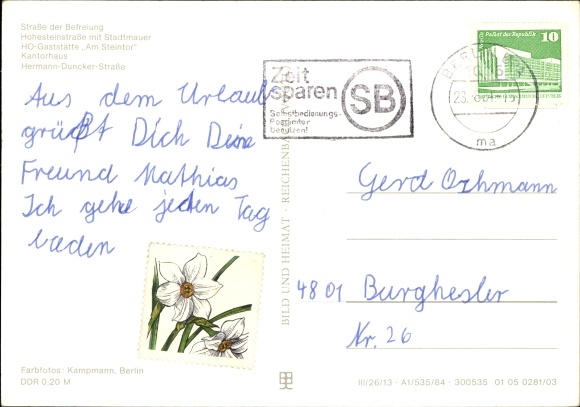 Straße der Befreiung
Hohesteinstraße mit Stadtmauer
HO-Gaststätte „Am Steintor“
Kantorhaus
Hermann-Duncker-Straße
Aus dem Urlaub
grüßt Dich Deine
Freund Mathias
Ich gehe jeden Tag
baden
Farbfotos: Kampmann, Berlin
DDR 0,20 M
BILD UND HEIMAT · REICHENBACH
Zeit
sparen
SB
Selbstbedienungs-
Postämter
benutzen!
BERLIN
23.
ma
Palast der Republik
10
Gerd Orhmann
4801 Burghesler
Nr. 26
III/26/13 · A1/535/84 · 300535 01 05 0281/03